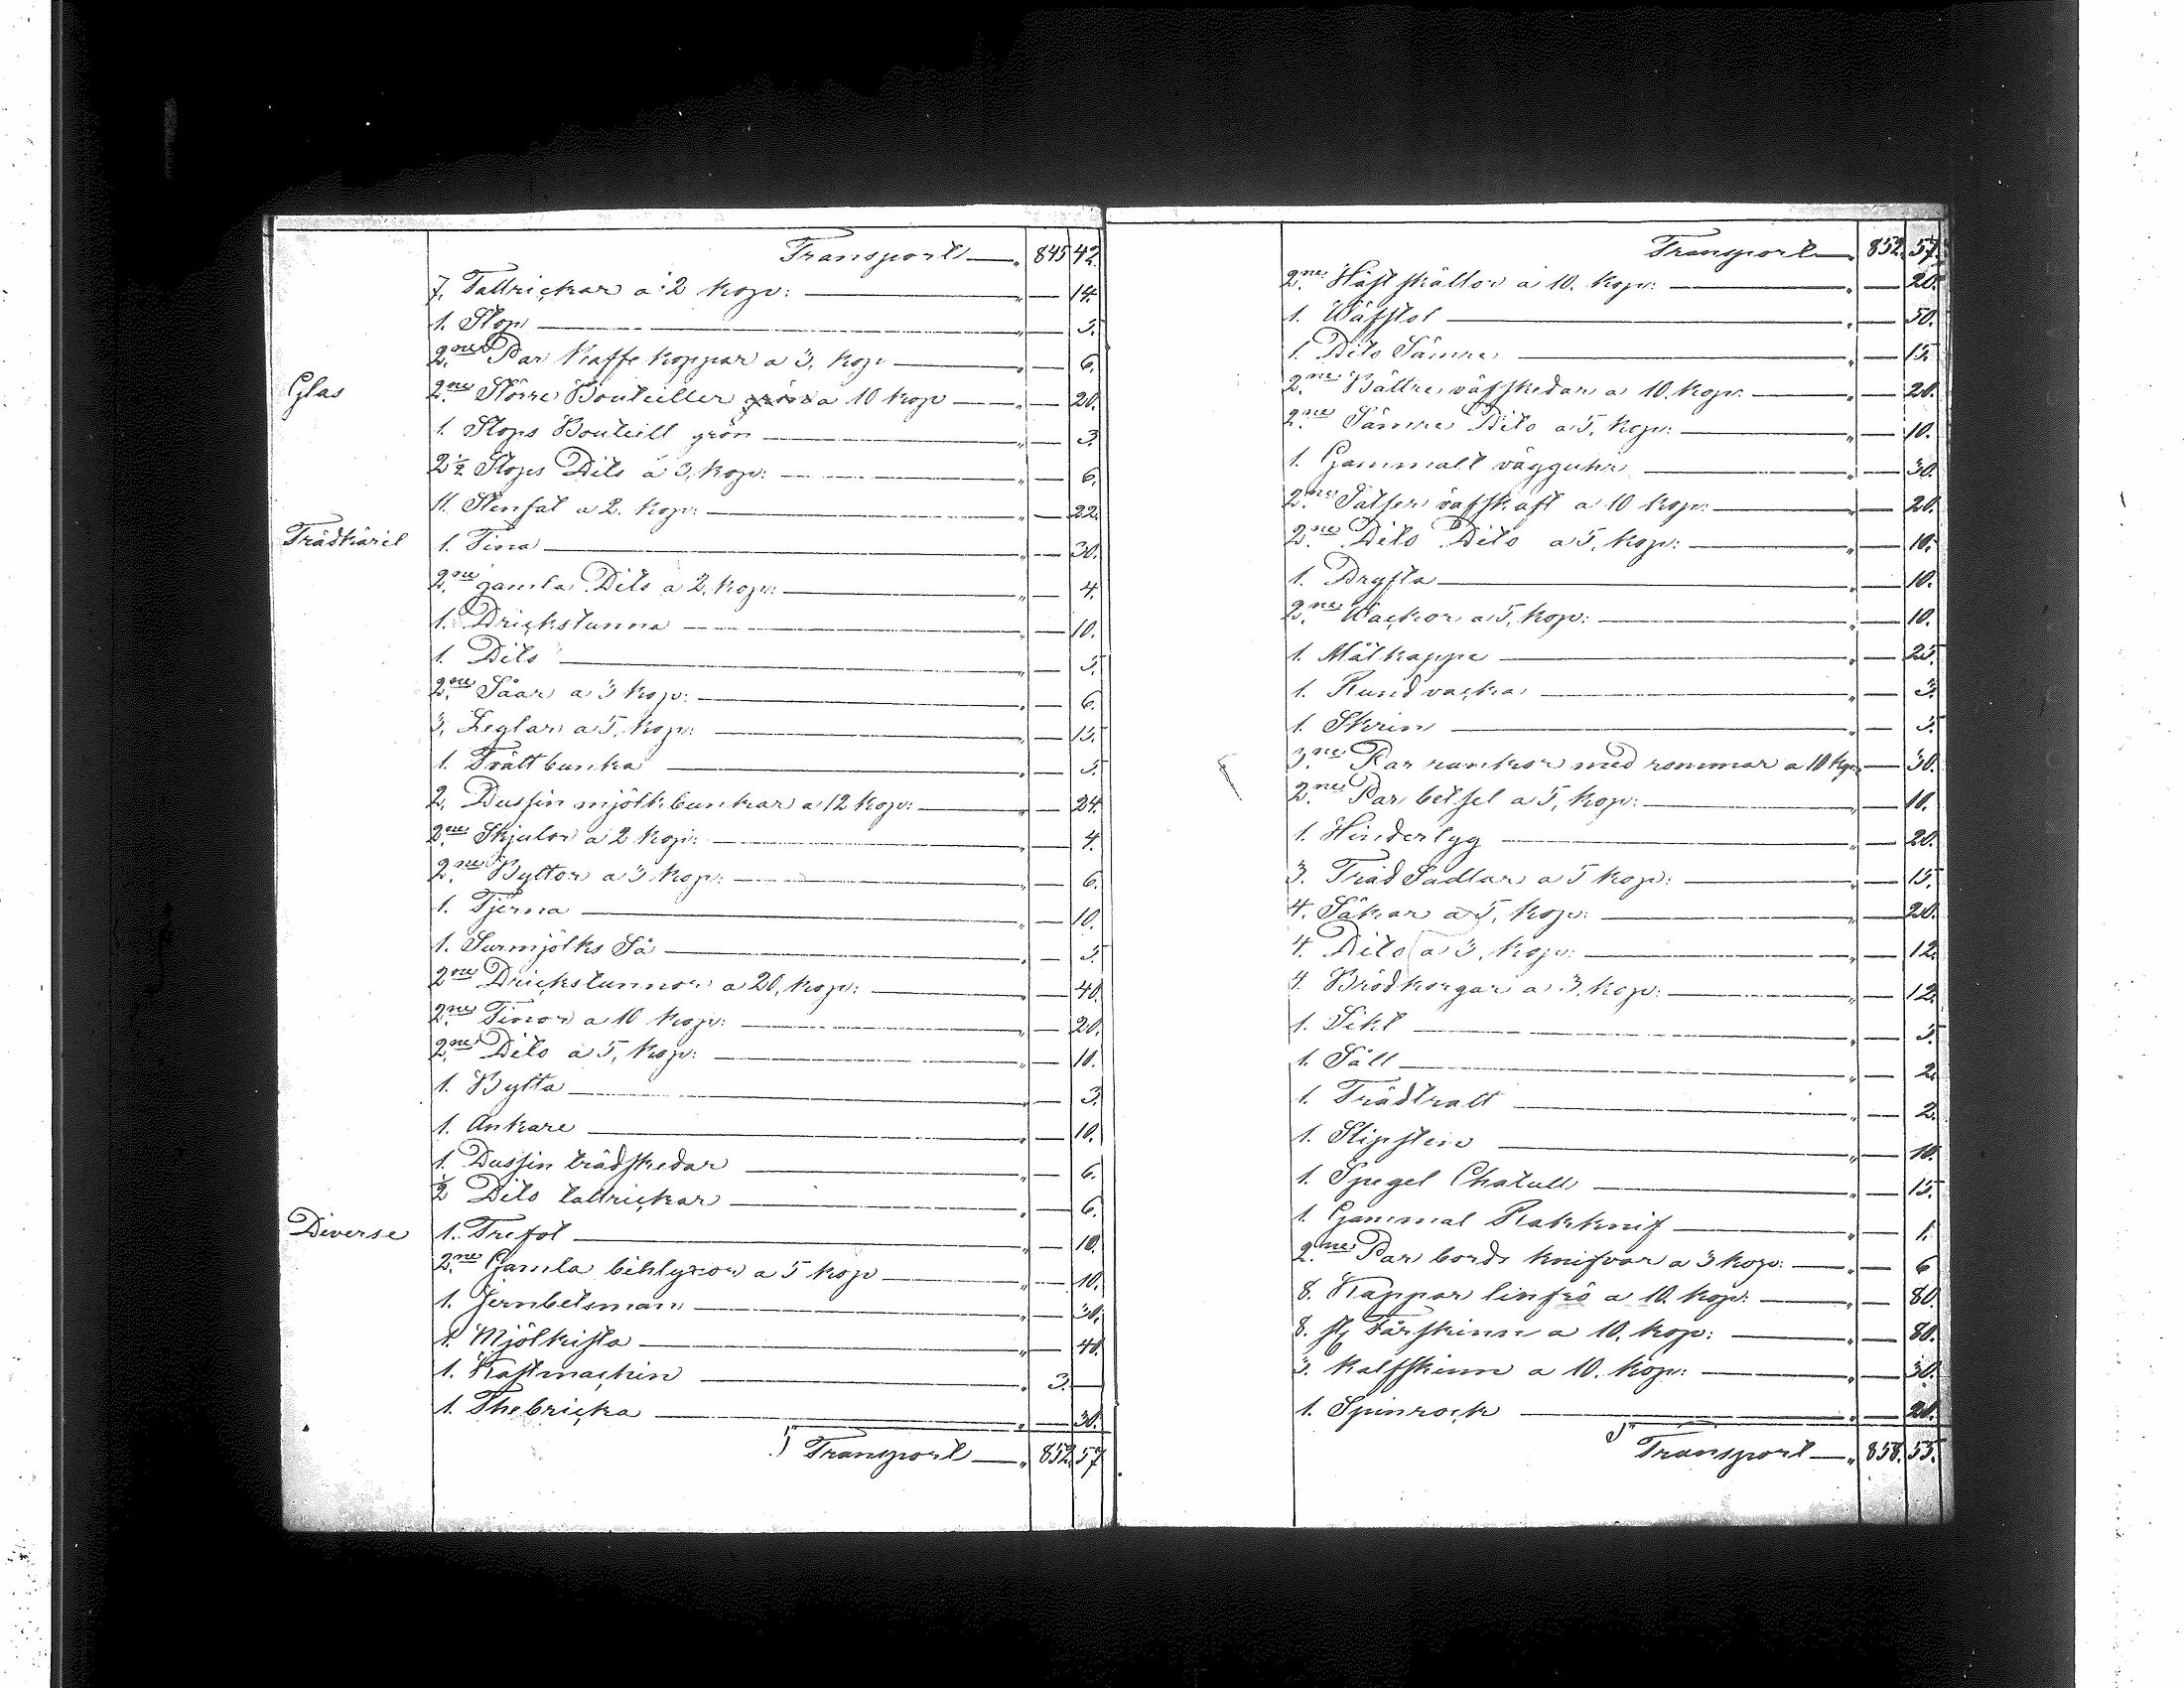 Transport — 845 42.
7. Tallrickar a 2 kop: — 14.
1. Stop — 5.
2ne Par kaffe koppar a 3, kop — 6.
Glas 2ne Större Bouteiller a 10 kop — 20.
1. Stops Bouteill grön — 3.
2 ½ Stops Dito a 3, kop: — 6.
11. Stenfat a 2. kop: — 22.
Trädkäril 1. Tina — 30.
2ne gamla Dito a 2, kop: — 4.
1. Drickstunna — 10.
1. Dito — 5.
2ne Såar a 3 kop: — 6.
3. Leglar a 5, kop: — 15.
1. Tvätt bunka — 5.
2. Dussin mjölk bunkar a 12 kop: — 24.
2ne Skjulor a 2 kop: — 4.
2ne Byttor a 3 kop: — 6.
1. Tjerna — 10.
1. Surmjölks Så — 5.
2ne Drickstunnor a 20, kop: — 40.
2ne Tinor a 10 kop: — 20.
2ne Dito a 5, kop: — 10.
1. Bytta — 3.
1. Ankare — 10.
1. Dussin trädskedar — 6.
½ Dito tallrickar — 6.
Diverse 1. Trefot — 10.
2ne Gamla a 5 kop — 10.
1. Jernbetsman — 30.
1. Mjölkista — 40.
1. Kastmaskin — 3. —
1. Thebricka — 30.
Transport — 852 57
Transport — 852. 57.
2ne Häst skällor a 10. kop: — 20.
1. Wäfstol — 50.
1. Dito Sämre — 15.
2ne Bättre väfskedar a 10. kop: — 20.
2ne Sämre Dito a 5, kop: — 10.
1. Gammalt vägguhr — 30.
2ne Satser väfskaft a 10 kop: — 20.
2ne Dito Dito a 5, kop: — 10.
1. Dryfta — 10.
2ne Wackor a 5, kop: — 10.
1. Målkappe — 25.
1. Rund vacka — 3.
1. Skrin — 5.
3ne Par rankor med remmar a 10 kop — 30.
2ne Par betsel a 5, kop: — 10.
1. Hindertyg — 20.
3. Träd Sadlar a 5 kop: — 15.
4. Säkar a 5, kop: — 20.
4. Dito a 3, kop: — 12.
4. Brödkorgar a 3, kop: — 12.
1. Sikt — 5.
1. Såll — 2.
1. Trädtratt — 2.
1. Slipsten — 10.
1. Spegel Chatull — 15.
1. Gammal Rakknif — 1.
2ne Par bords knifvar a 3 kop: — 6
8. Kappar linfrö a 10. kop: — 80.
8. st Fårskinn a 10. kop: — 80.
3. kalfskinn a 10. kop: — 30.
1. Spinrock — 20.
Transport — 858. 55.